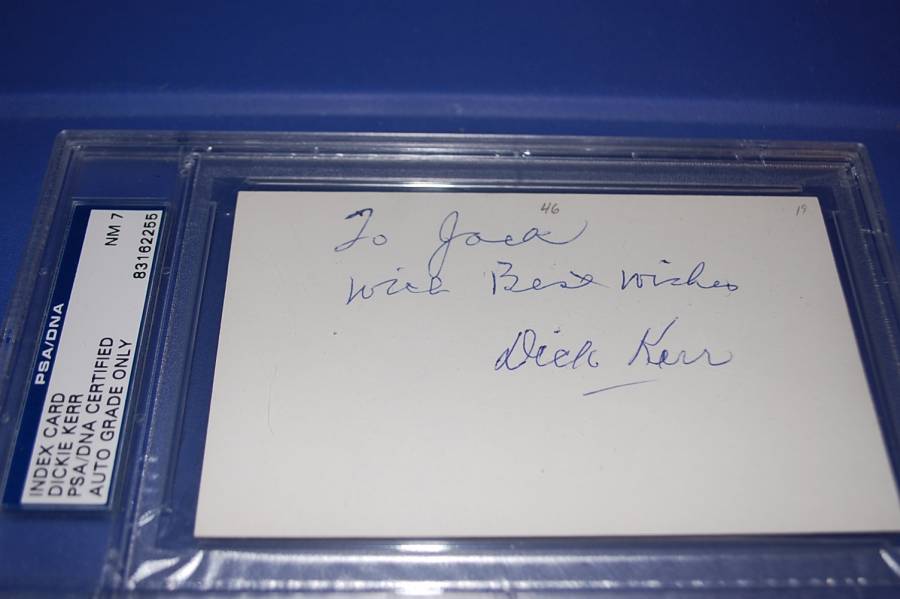 PSA/DNA
INDEX CARD
DICKIE KERR
PSA/DNA CERTIFIED
AUTO GRADE ONLY
NM 7
83162255
46
19
To Jack
With Best Wishes
Dick Kerr